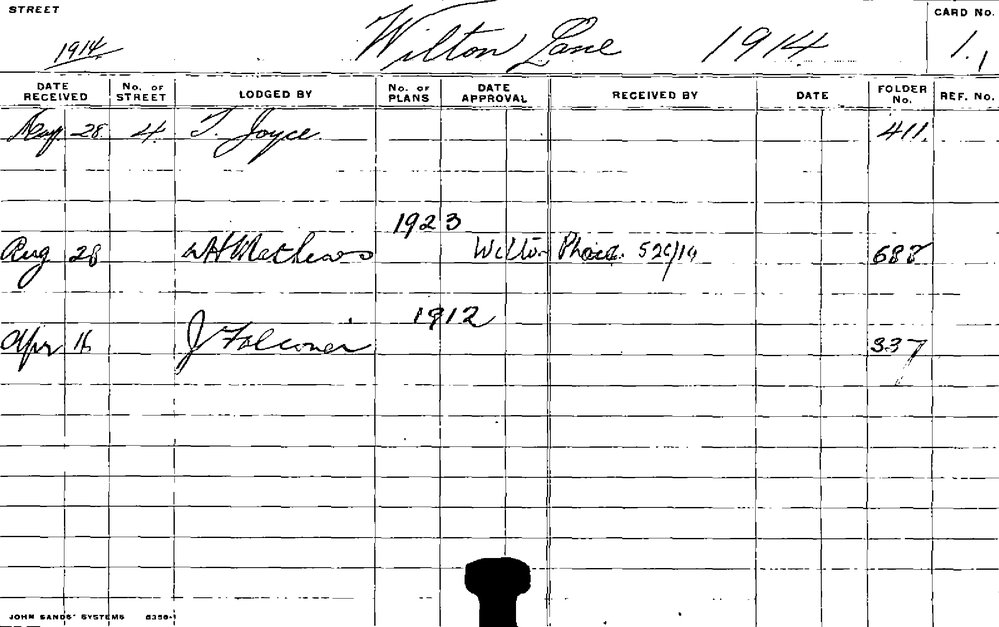 STREET
CARD No.
1914
Wilton Lane 1914
1.1
DATE RECEIVED No. OF STREET LODGED BY No. OF PLANS DATE APPROVAL RECEIVED BY DATE FOLDER No. REF. No.
28 4 T. Joyce 411.
1923
Aug 28 WH Mathews Wilton 688
1912
Apr 16 J Falconer 337
JOHN SANDS' SYSTEMS 8350-1